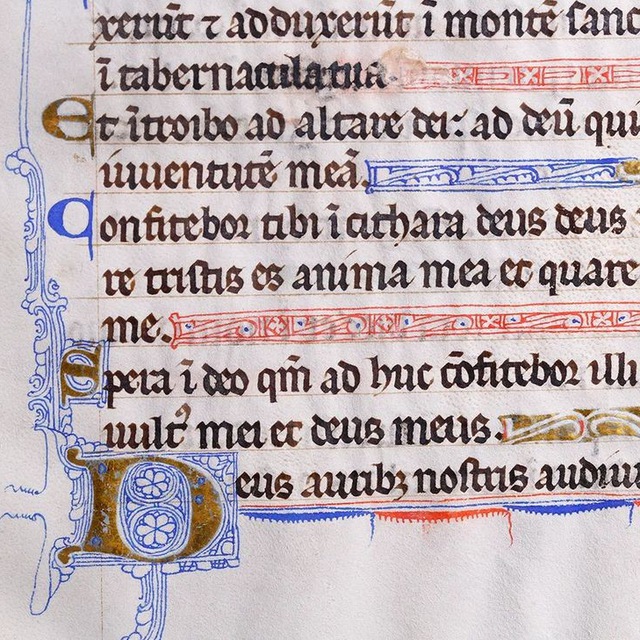 xerūt ⁊ adduxerūt ī montē sanc
ī tabernacula tua.
Et ītroibo ad altare dei: ad deū qui
iuuentutē meā.
Confitebor tibi ī cithara deus deus
re tristis es anima mea et quare
me.
Spera ī deo qm̄ ad huc cōfitebor illi
uult᷒ mei et deus meus.
Deus aurib⁊ nostris audiui